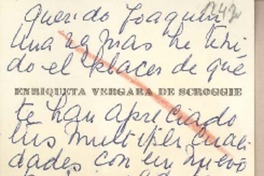 1242
Querido Joaquín
Una vez mas he teni
do el placer de que
ENRIQUETA VERGARA DE SCROGGIE
te han apreciado
tus multiples cuali
dades con un nuevo